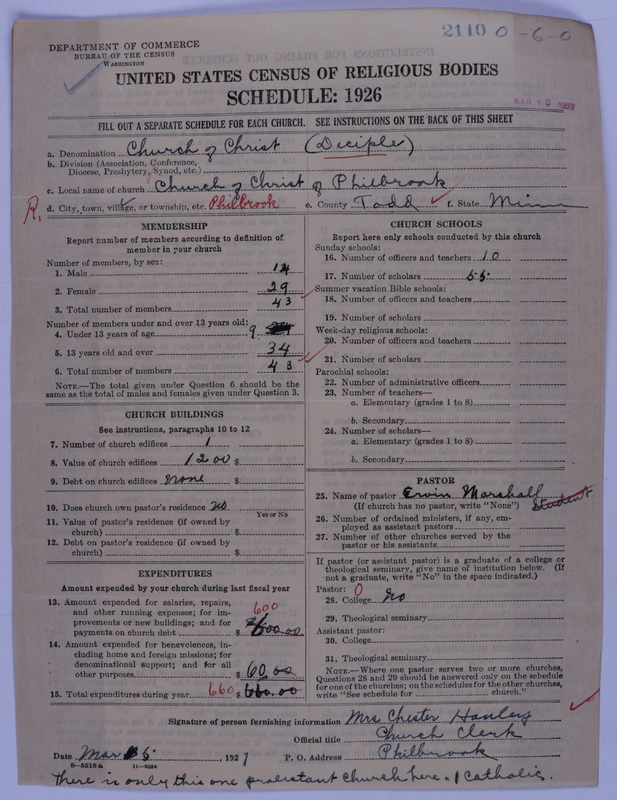 2110 0-6-0
DEPARTMENT OF COMMERCE
BUREAU OF THE CENSUS
WASHINGTON
UNITED STATES CENSUS OF RELIGIOUS BODIES
SCHEDULE: 1926
MAR 10 1927
FILL OUT A SEPARATE SCHEDULE FOR EACH CHURCH. SEE INSTRUCTIONS ON THE BACK OF THIS SHEET
a. Denomination Church of Christ (Deciple)
b. Division (Association, Conference,
Diocese, Presbytery, Synod, etc.)
c. Local name of church Church of Christ of Philbrook
R, d. City, town, village, or township, etc. Philbrook e. County Todd f. State Minn
MEMBERSHIP
Report number of members according to definition of
member in your church
Number of members, by sex:
1. Male 14
2. Female 29
3. Total number of members 43
Number of members under and over 13 years old:
4. Under 13 years of age 9
5. 13 years old and over 34
6. Total number of members 43
NOTE.—The total given under Question 6 should be
same as the total of males and females given under Question 3.
CHURCH BUILDINGS
See instructions, paragraphs 10 to 12
7. Number of church edifices 1
8. Value of church edifices 1200 $
9. Debt on church edifices none $
10. Does church own pastor's residence no
Yes or No
11. Value of pastor's residence (if owned by
church) $
12. Debt on pastor's residence (if owned by
church) $
EXPENDITURES
Amount expended by your church during last fiscal year
13. Amount expended for salaries, repairs,
and other running expenses; for im-
provements or new buildings; and for
payments on church debt $ 600 600.00
14. Amount expended for benevolences, in-
cluding home and foreign missions; for
denominational support; and for all
other purposes $ 60.00
15. Total expenditures during year 660 $ 660.00
CHURCH SCHOOLS
Report here only schools conducted by this church
Sunday schools:
16. Number of officers and teachers 10
17. Number of scholars 55
Summer vacation Bible schools:
18. Number of officers and teachers
19. Number of scholars
Week-day religious schools:
20. Number of officers and teachers
21. Number of scholars
Parochial schools:
22. Number of administrative officers
23. Number of teachers—
a. Elementary (grades 1 to 8)
b. Secondary
24. Number of scholars—
a. Elementary (grades 1 to 8)
b. Secondary
PASTOR
25. Name of pastor Erwin Marshall
(If church has no pastor, write "None") Student
26. Number of ordained ministers, if any, em-
ployed as assistant pastors
27. Number of other churches served by the
pastor or his assistants
If pastor (or assistant pastor) is a graduate of a college or
theological seminary, give name of institution below. (If
not a graduate, write "No" in the space indicated.)
Pastor: 0
28. College no
29. Theological seminary
Assistant pastor:
30. College
31. Theological seminary
NOTE.—Where one pastor serves two or more churches,
Questions 28 and 29 should be answered only on the schedule
for one of the churches; on the schedules for the other churches,
write "See schedule for church."
Signature of person furnishing information Mrs Chester Hanley
Official title Church Clerk
Date Mar 5, 1927 P. O. Address Philbrook
8-5518a 11-9034
There is only this one protestant church here. 1 Catholic.